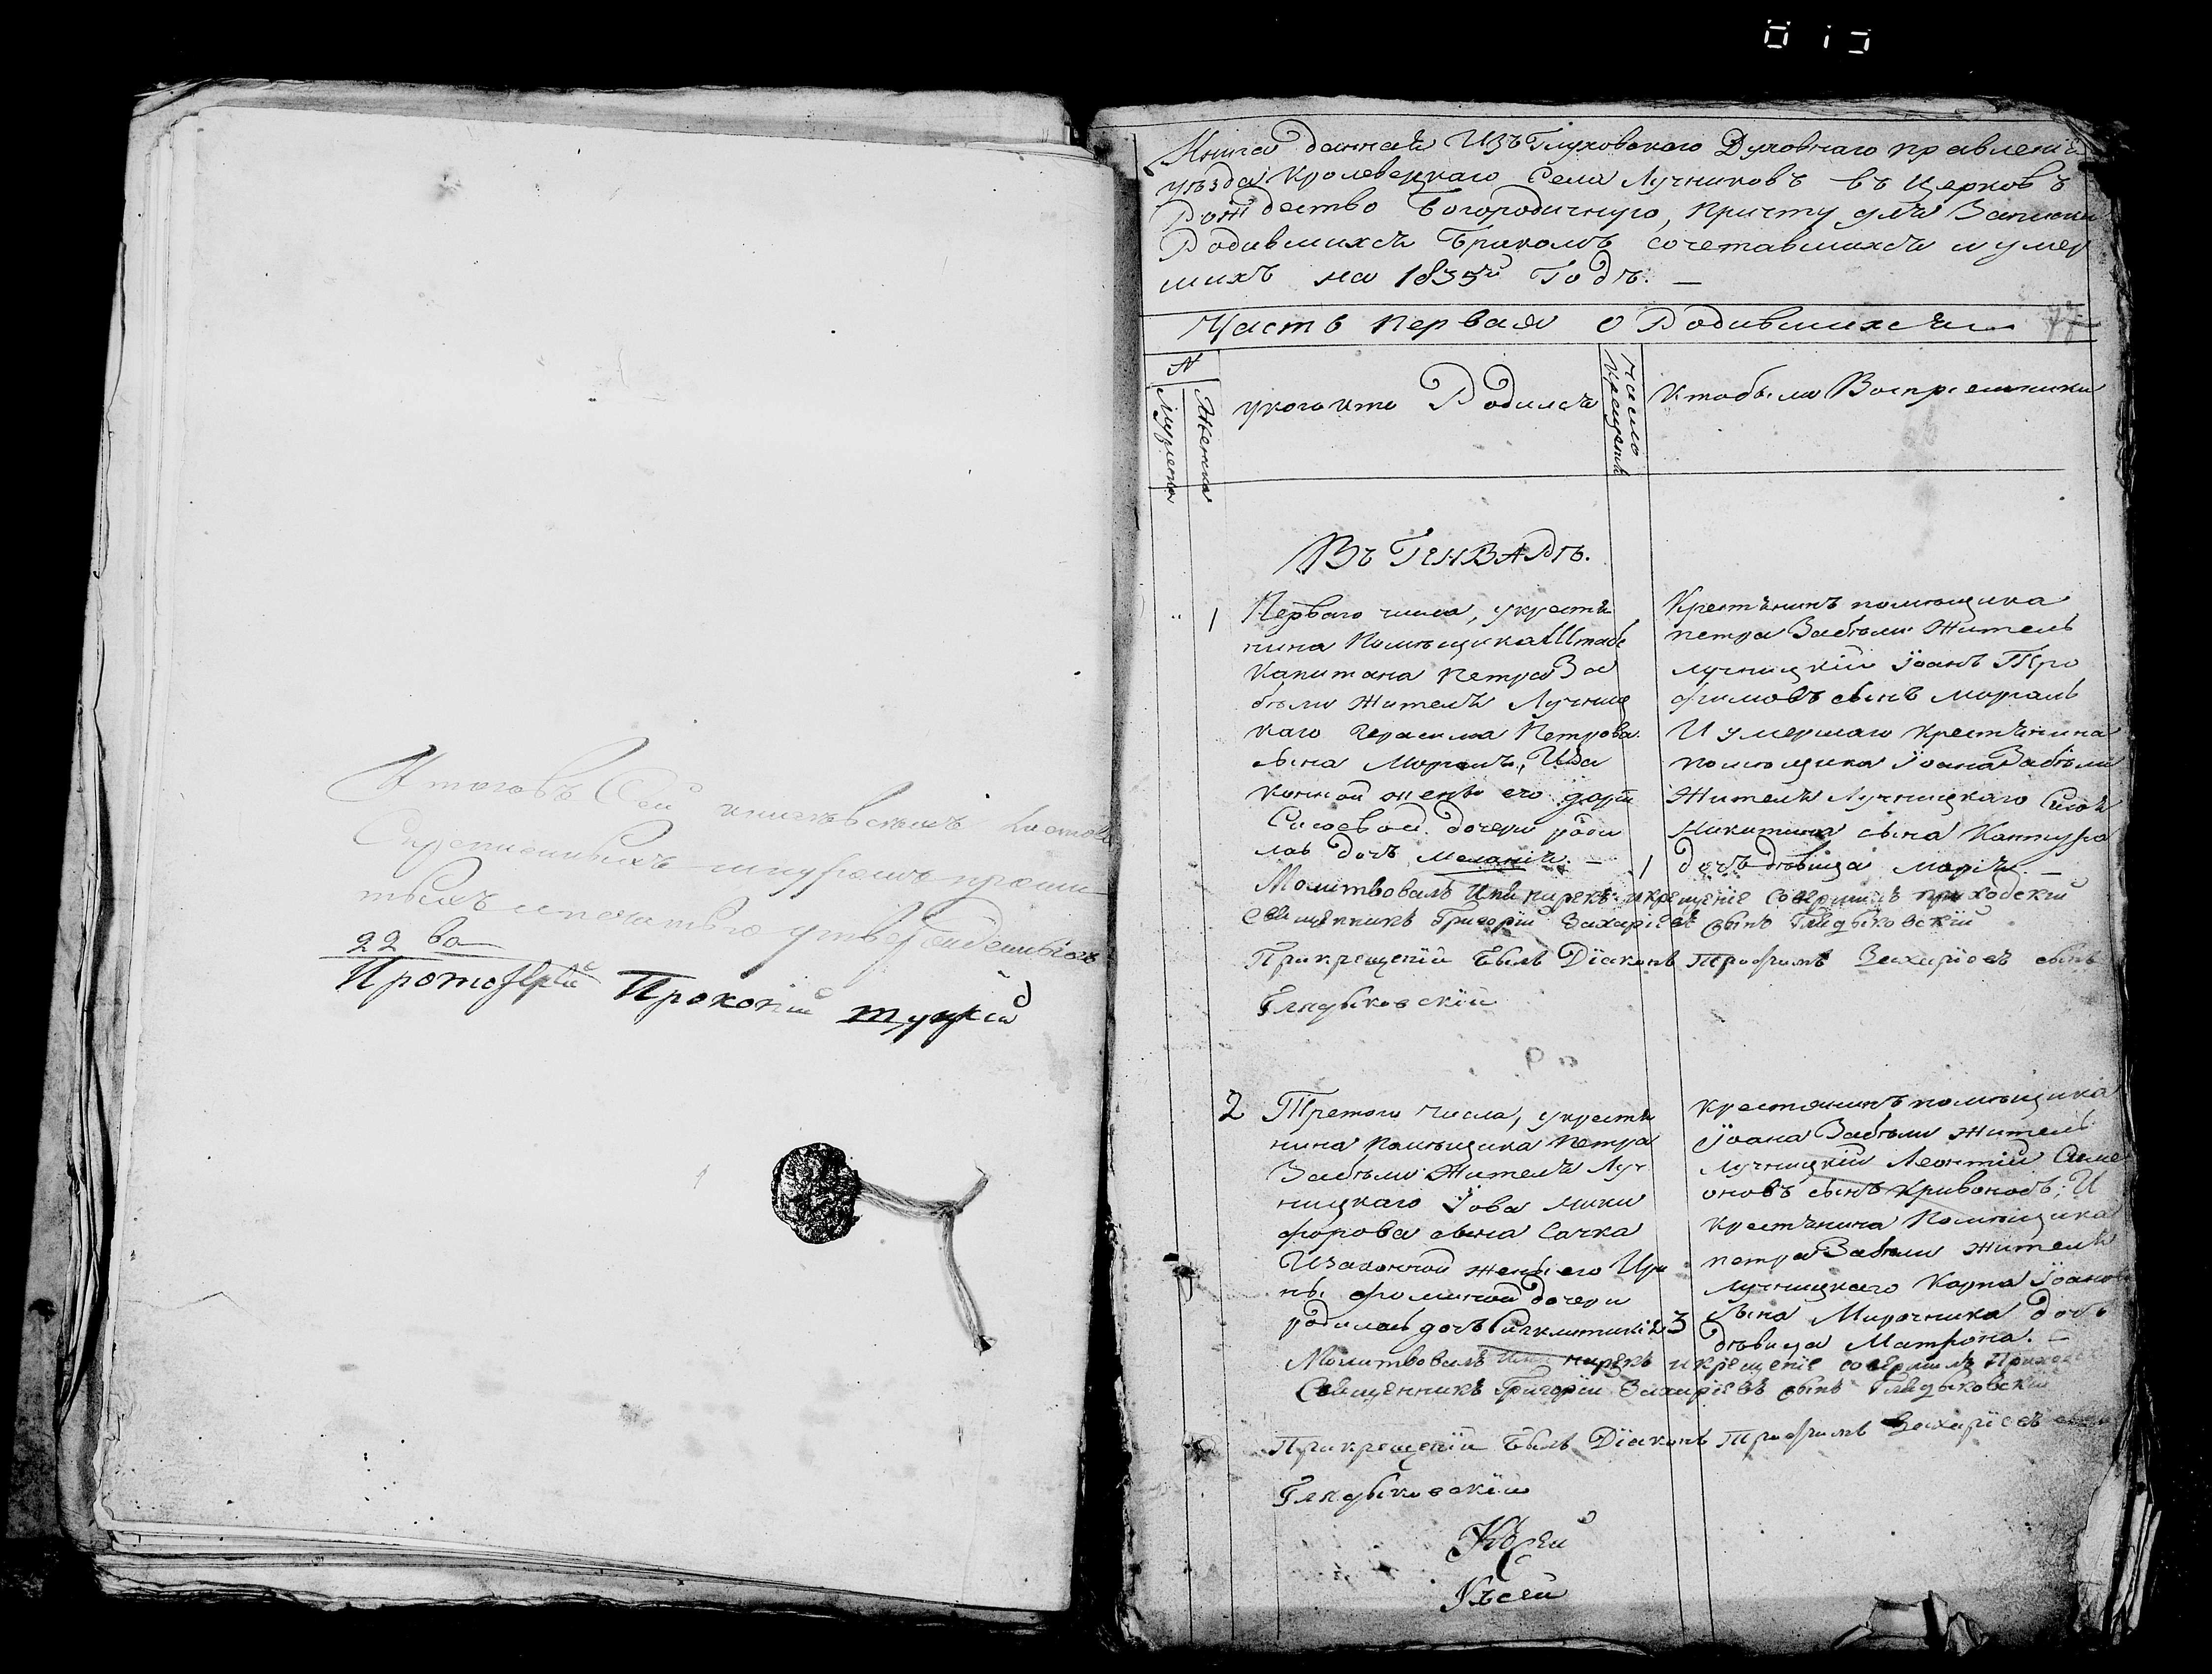 Итогов Сей книги всѣхъ листовъ
Скрепленныхъ шнуромъ проши
тыхъ и печатью утвержденныхъ
22 ва
Протоіерей Прокопій
Книга данная Изъ Глуховского Духовнаго правленія
уѣзда Кролевецкаго Села Лучниковъ въ Церковъ
Рождество Богородичную, Причту для Записки
Родившихся Бракомъ сочетавшихся и умер
шихъ на 1835й Годъ. —
Часть Первая О Родившихся
N
Мужеска
Женска
У кого кто Родился
Число
Крещенія
Кто были Восприемники
Въ ГЕНВАРѢ.
1
Перваго числа, у крестя
нина Помѣщика Штабс
Капитана Петра За
бѣлы Жителя Лучниц
каго Герасима Петрова
сына Мораль, И За
конной жены его Дарiи
Сисоевой дочери роди
лась дочь Меланія. —
1
Крестянинъ помѣщика
Петра Забѣлы Житель
Лучницкій Іоанъ Тро
фимовъ сынъ Мораль
И умершаго крестянина
помѣщика Іоана Забѣлы
Жителя Лучницкаго Сисоя
Никитина сына Кантура
дочь дѣвица Марія. —
Молитвовалъ Имя нарекъ и крещеніе Совершилъ приходскій
Священникъ Григорій Захаріевъ сынъ Глядыковскій
При крещеніи Былъ Діаконъ Трофимъ Захаріевъ сынъ
Глядыковскій
2
Третого Числа, у крестя
нина Помѣщика Петра
Забѣлы Жителя Луч
ницкаго Іова Ники
форова сына Сачка
И Законной жены его Ири
ны Фоминой дочери
родилась дочь Синклитикія
3
Крестянинъ помѣщика
Іоана Забѣлы Житель
Лучницкій Леонтій Симе
оновъ сынъ Кривоносъ, И
крестянина Помѣщика
Петра Забѣлы Жителя
Лучницкаго Карпа Іоанов
сына Мирочника дочь
дѣвица Матрона. —
Молитвовалъ Имя нарекъ и крещеніе совершилъ Приходск
Священникъ Григорій Захаріевъ сынъ Глядыковскій
При крещеніи Былъ Діаконъ Трофимъ Захаріевъ сынъ
Глядыковскій
Къ сей
Къ сей